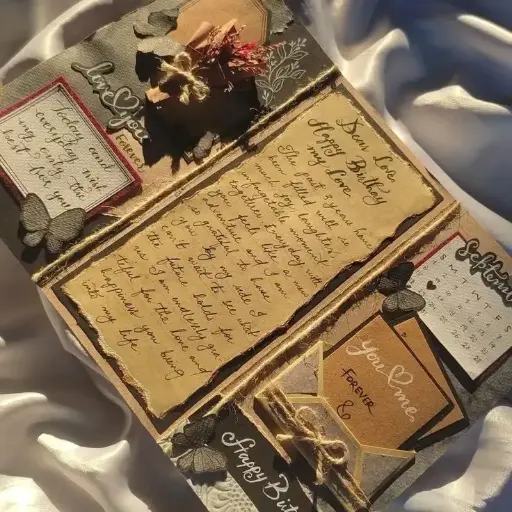 love you
Forever
Today and
everyday wish
my only
best for you
Dear Love,
Happy Birthday
my Love
The past years have
been filled with so
much joy, laughter,
unforgettable moments
together. Everyday with
you feels like a new
adventure and I am
so grateful to have
you by my side. I
can't wait to see what
the future holds for
us. I am endlessly gra
teful for the love and
happiness you bring
into my life
September
S M T W T F S
You me
FOREVER
&
Happy Birt